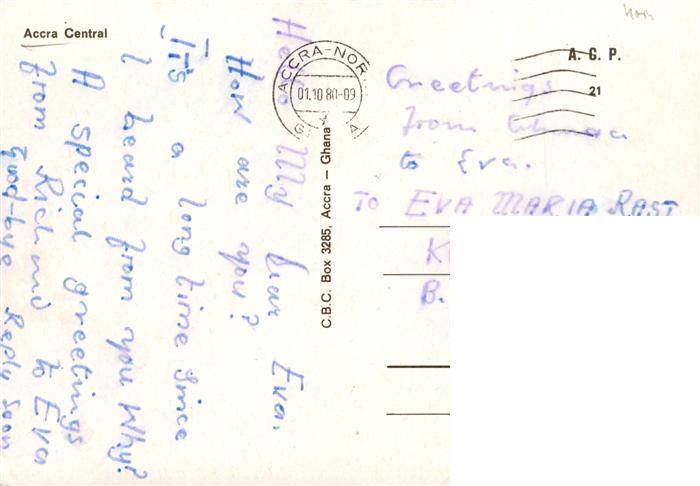 Accra Central
Hello My Dear Eva.
How are you?
It's a long time since
I heard from you Why?
A special greetings
from Richmd to Eva
Good-bye Reply Soon
C.B.C. Box 3285, Accra – Ghana
ACCRA-NOR
01.10 80-09
G A
A. G. P.
21
Greetings
from Ghana
to Eva.
TO EVA MARIA RAST
K
B.